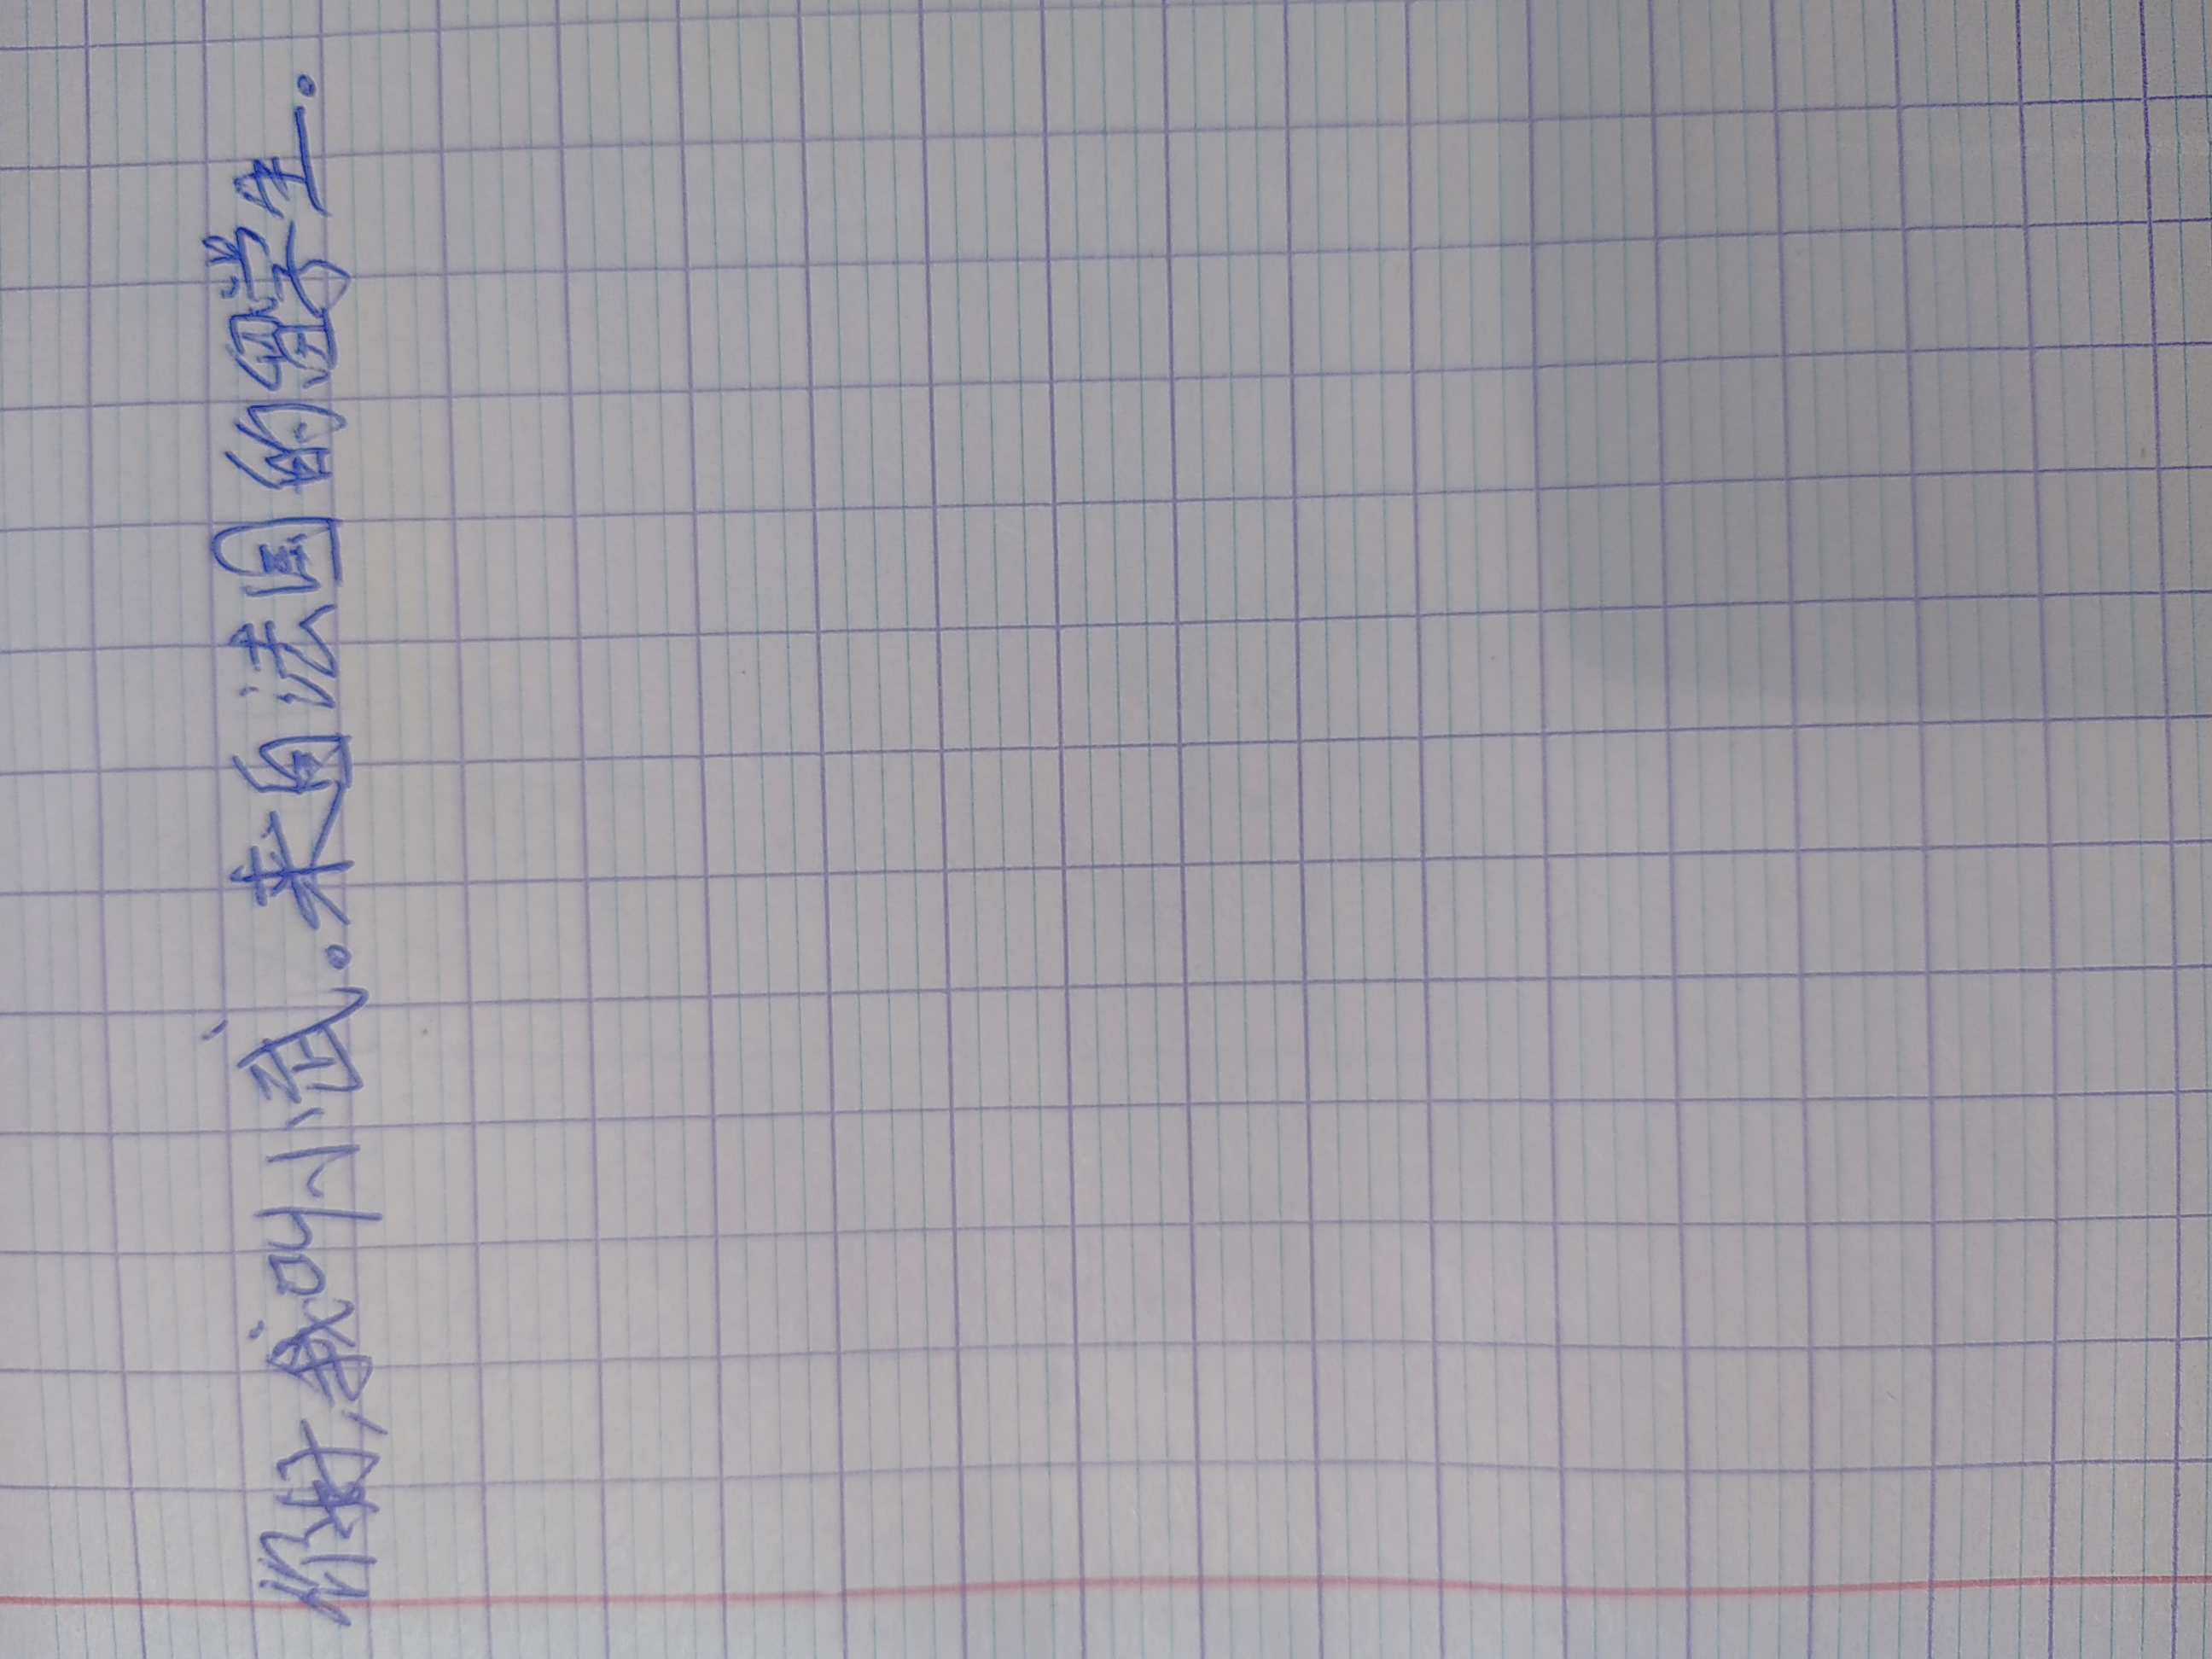 你好,我叫小武。来自法国的留学生。